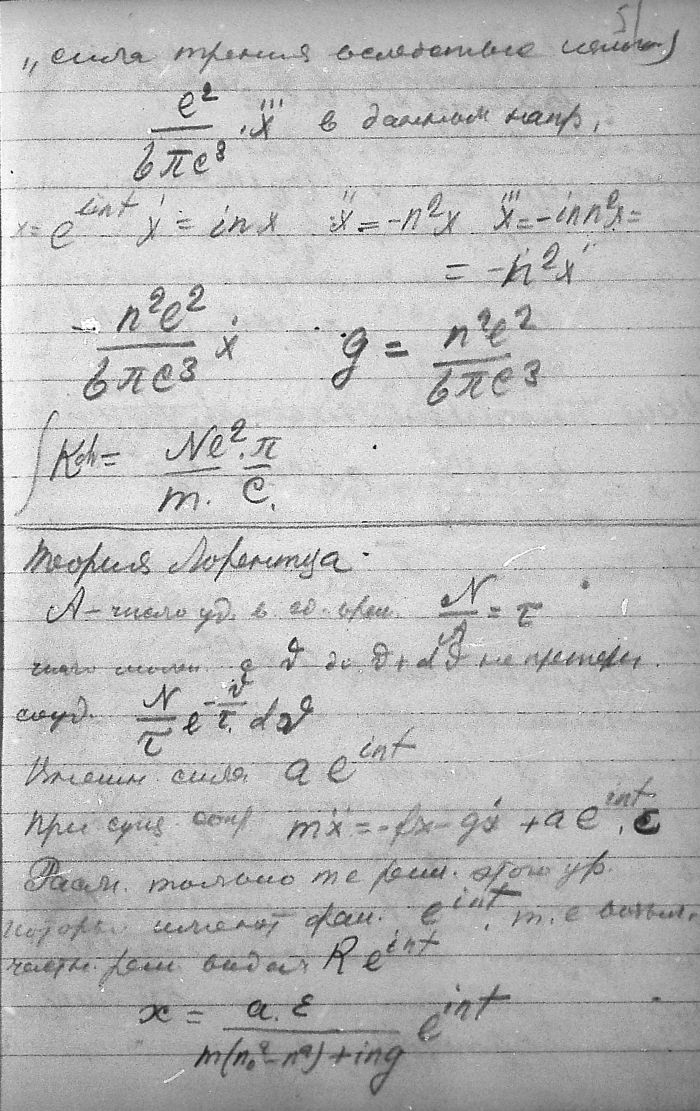 51
„сила трения вследствие излуч.)
e²/6πc³ · x⃛ в данном напр.
x = e^{int} ẋ = inx ẍ = -n²x x⃛ = -inn²x =
= -n²ẋ
- n²e²/6πc³ ẋ g = n²e²/6πc³
∫ K dn = Ne²/m · π/c.
Теория Лорентца.
A – число уд. в ед. врем. N/A = τ
число молек. с ϑ до ϑ + dϑ не претерп.
соуд. N/τ e^{-ϑ/τ} dϑ
Внешн. сила a e^{int}
При сущ. mẍ = -fx - gẋ + a e^{int}. ε
Разсм. только те реш. этого ур.
которы имеют фак. e^{int}, т.е возьм.
частн. реш вида R e^{int}
x = a.ε / m(n₀² - n²) + ing e^{int}